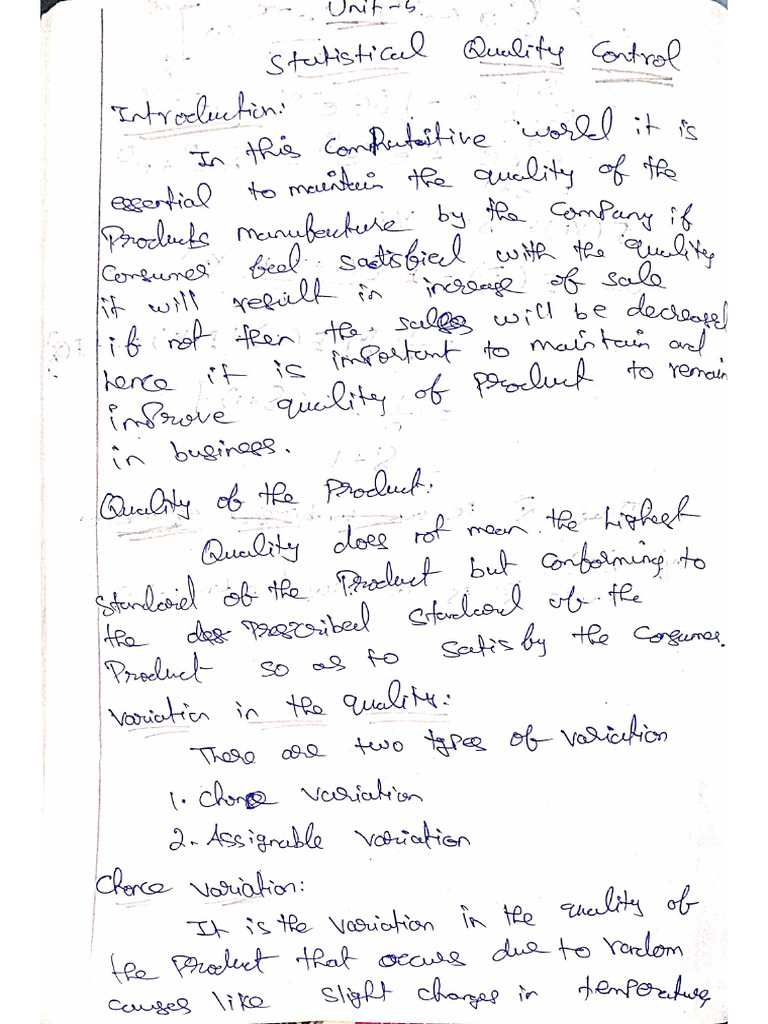 Unit-5
Statistical Quality Control
Introduction:
In this Compatuitive world it is
essential to maintain the quality of the
Products manufacture by the Company if
Consumer feel satisfied with the quality
it will result in increase of sale
if not then the sales will be decreased
hence it is important to maintain and
improve quality of Product to remain
in business.
Quality of the Product:
Quality does not mean the highest
Standard of the Product but Conforming to
the Prescribed Standard of the
Product so as to satisfy the Consumer.
Variation in the quality:
There are two types of variation
1. Chance variation
2. Assignable variation
Chance variation:
It is the variation in the quality of
the Product that occurs due to random
causes like slight changes in temperature,